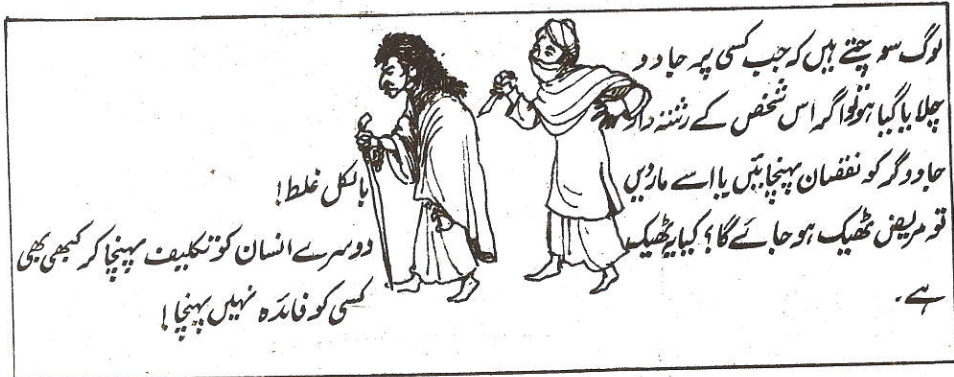 لوگ سوچتے ہیں کہ جب کسی پر جادو
چلایا گیا ہو تو اگر اس شخص کے رشتہ دار
جادوگر کو نقصان پہنچائیں یا اسے مار دیں
تو مریض ٹھیک ہو جائے گا؟ کیا یہ ٹھیک
ہے۔
بالکل غلط!
دوسرے انسان کو تکلیف پہنچا کر کبھی بھی
کسی کو فائدہ نہیں پہنچا!